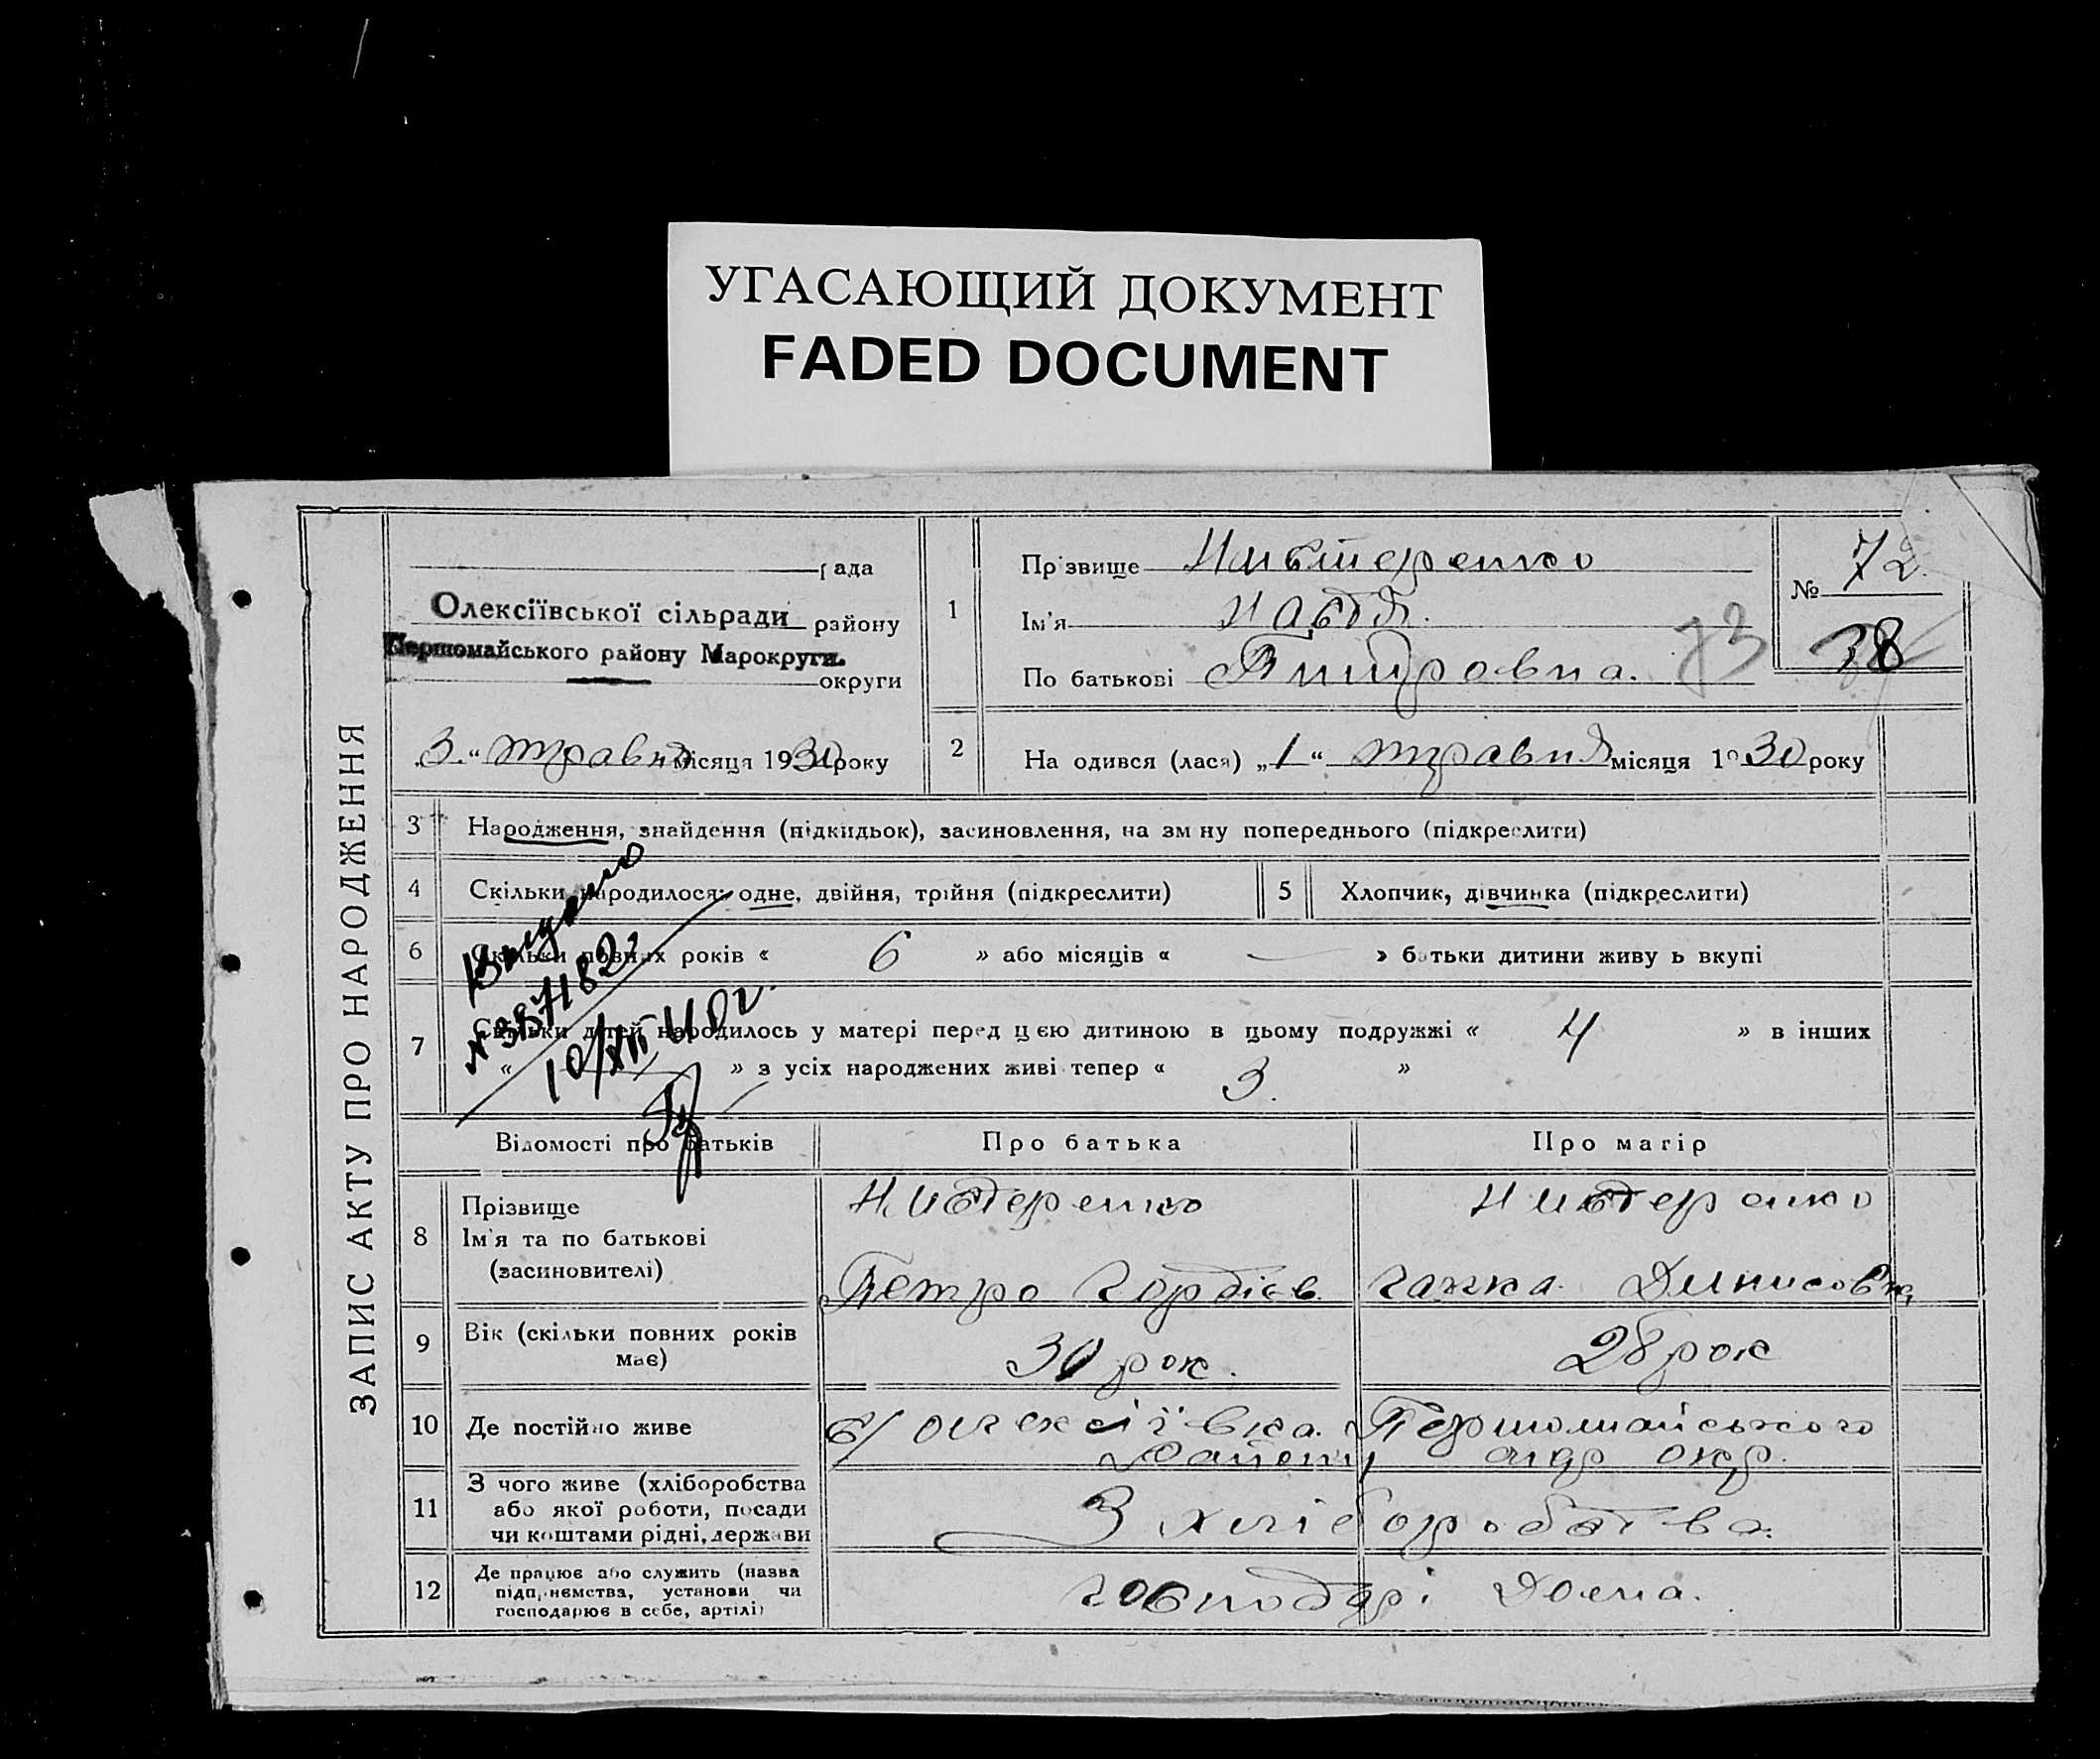 УГАСАЮЩИЙ ДОКУМЕНТ
FADED DOCUMENT
ЗАПИС АКТУ ПРО НАРОДЖЕННЯ
рада
Олексіївської сільради району
Первомайського району Марокруги.
округи
3 “ травня місяця 1930 року
1
Прізвище Нистеренко
Ім'я Настя.
По батькові Питровна.
73
№ 72
38
2
На одився (лася) „1“ травня місяця 1930 року
3 Народження, знайдення (підкидьок), засиновлення, на зм ну попереднього (підкреслити)
4 Скільки народилося: одне, двійня, трійня (підкреслити)
5 Хлопчик, дівчинка (підкреслити)
6 Скільки повних років « 6 » або місяців « — » батьки дитини живу ь вкупі
7 Скільки дітей народилось у матері перед цією дитиною в цьому подружжі « 4 » в інших
« — » з усіх народжених живі тепер « 3. »
№
10/XII 40 г.
Відомості про батьків Про батька Про матір
8 Прізвище
Ім'я та по батькові
(засиновителі)
Нистеренко
Петро Гордієв.
Нистеренко
Ганка Динисовна
9 Вік (скільки повних років має)
30 рок.
28 рок
10 Де постійно живе
с/ Олексіївка. Першомайського
Району окр.
11 З чого живе (хліборобства
або якої роботи, посади
чи коштами рідні, держави
З хліборобства.
12 Де працює або служить (назва
підприємства, установи чи
господарює в себе, артілі)
господарі Дома.